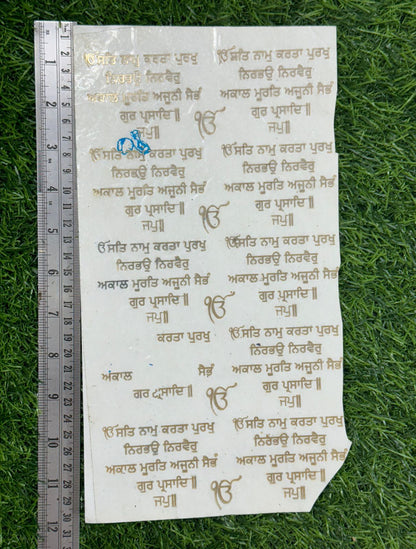 ੴ ਸਤਿ ਨਾਮੁ ਕਰਤਾ ਪੁਰਖੁ
ਨਿਰਭਉ ਨਿਰਵੈਰੁ
ਅਕਾਲ ਮੂਰਤਿ ਅਜੂਨੀ ਸੈਭੰ
ਗੁਰ ਪ੍ਰਸਾਦਿ॥
ਜਪੁ॥
ੴ ਸਤਿ ਨਾਮੁ ਕਰਤਾ ਪੁਰਖੁ
ਨਿਰਭਉ ਨਿਰਵੈਰੁ
ਅਕਾਲ ਮੂਰਤਿ ਅਜੂਨੀ ਸੈਭੰ
ਗੁਰ ਪ੍ਰਸਾਦਿ॥
ਜਪੁ॥
ੴ
ੴ ਸਤਿ ਨਾਮੁ ਕਰਤਾ ਪੁਰਖੁ
ਨਿਰਭਉ ਨਿਰਵੈਰੁ
ਅਕਾਲ ਮੂਰਤਿ ਅਜੂਨੀ ਸੈਭੰ
ਗੁਰ ਪ੍ਰਸਾਦਿ॥
ਜਪੁ॥
ੴ ਸਤਿ ਨਾਮੁ ਕਰਤਾ ਪੁਰਖੁ
ਨਿਰਭਉ ਨਿਰਵੈਰੁ
ਅਕਾਲ ਮੂਰਤਿ ਅਜੂਨੀ ਸੈਭੰ
ਗੁਰ ਪ੍ਰਸਾਦਿ॥
ਜਪੁ॥
ੴ
ੴ ਸਤਿ ਨਾਮੁ ਕਰਤਾ ਪੁਰਖੁ
ਨਿਰਭਉ ਨਿਰਵੈਰੁ
ਅਕਾਲ ਮੂਰਤਿ ਅਜੂਨੀ ਸੈਭੰ
ਗੁਰ ਪ੍ਰਸਾਦਿ॥
ਜਪੁ॥
ੴ ਸਤਿ ਨਾਮੁ ਕਰਤਾ ਪੁਰਖੁ
ਨਿਰਭਉ ਨਿਰਵੈਰੁ
ਅਕਾਲ ਮੂਰਤਿ ਅਜੂਨੀ ਸੈਭੰ
ਗੁਰ ਪ੍ਰਸਾਦਿ॥
ਜਪੁ॥
ੴ
ਕਰਤਾ ਪੁਰਖੁ
ਅਕਾਲ ਸੈਭੰ
ੴ ਸਤਿ ਨਾਮੁ ਕਰਤਾ ਪੁਰਖੁ
ਨਿਰਭਉ ਨਿਰਵੈਰੁ
ਅਕਾਲ ਮੂਰਤਿ ਅਜੂਨੀ ਸੈਭੰ
ਗੁਰ ਪ੍ਰਸਾਦਿ॥
ਜਪੁ॥
ੴ
ੴ ਸਤਿ ਨਾਮੁ ਕਰਤਾ ਪੁਰਖੁ
ਨਿਰਭਉ ਨਿਰਵੈਰੁ
ਅਕਾਲ ਮੂਰਤਿ ਅਜੂਨੀ ਸੈਭੰ
ਗੁਰ ਪ੍ਰਸਾਦਿ॥
ਜਪੁ॥
ੴ ਸਤਿ ਨਾਮੁ ਕਰਤਾ ਪੁਰਖੁ
ਨਿਰਭਉ ਨਿਰਵੈਰੁ
ਅਕਾਲ ਮੂਰਤਿ ਅਜੂਨੀ ਸੈਭੰ
ਗੁਰ ਪ੍ਰਸਾਦਿ॥
ਜਪੁ॥
ੴ